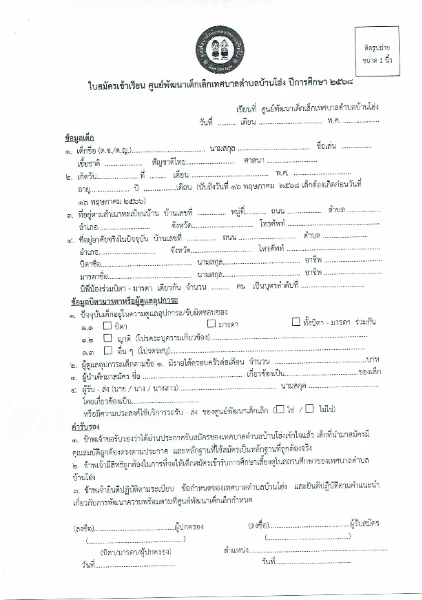 ติดรูปถ่าย
ขนาด 1 นิ้ว
ใบสมัครเข้าเรียน ศูนย์พัฒนาเด็กเล็กเทศบาลตำบลบ้านโฮ่ง ปีการศึกษา ๒๕๖๘
เขียนที่ ศูนย์พัฒนาเด็กเล็กเทศบาลตำบลบ้านโฮ่ง
วันที่ ........ เดือน ........................ พ.ศ. ..................
ข้อมูลเด็ก
๑. เด็กชื่อ (ด.ช./ด.ญ.)........................ นามสกุล ........................ ชื่อเล่น ............
เชื้อชาติ ............ สัญชาติไทย............ ศาสนา ................
๒. เกิดวัน............ ที่ ........ เดือน ........................ พ.ศ. ..................
อายุ............ ปี ............เดือน (นับถึงวันที่ ๑๖ พฤษภาคม ๒๕๖๘ เด็กต้องเกิดก่อนวันที่
๑๖ พฤษภาคม ๒๕๖๖)
๓. ที่อยู่ตามสำเนาทะเบียนบ้าน บ้านเลขที่ ............ หมู่ที่....... ถนน ............ ตำบล ............
อำเภอ........................ จังหวัด........................ โทรศัพท์ ..................
๔. ที่อยู่อาศัยจริงในปัจจุบัน บ้านเลขที่ ............ ถนน ............ ตำบล ............
อำเภอ........................ จังหวัด........................ โทรศัพท์ ..................
บิดาชื่อ........................ นามสกุล........................ อาชีพ ............
มารดาชื่อ........................ นามสกุล........................ อาชีพ ............
มีพี่น้องร่วมบิดา - มารดา เดียวกัน จำนวน ........ คน เป็นบุตรลำดับที่ ..................
ข้อมูลบิดามารดาหรือผู้ดูแลอุปการะ
๑. ปัจจุบันเด็กอยู่ในความดูแลอุปการะ/รับผิดชอบของ
๑.๑ ☐ บิดา ☐ มารดา ☐ ทั้งบิดา - มารดา ร่วมกัน
๑.๒ ☐ ญาติ (โปรดระบุความเกี่ยวข้อง) ........................
๑.๓ ☐ อื่น ๆ (โปรดระบุ)........................
๒. ผู้ดูแลอุปการะเด็กตามข้อ ๑. มีรายได้ครอบครัวต่อเดือน จำนวน ........................บาท
๓. ผู้นำเด็กมาสมัคร ชื่อ ........................ เกี่ยวข้องเป็น........................ของเด็ก
๔. ผู้รับ - ส่ง (นาย / นาง / นางสาว) ........................ นามสกุล ........................
โดยเกี่ยวข้องเป็น........................
หรือมีความประสงค์ใช้บริการรถรับ - ส่ง ของศูนย์พัฒนาเด็กเล็ก (☐ ใช่ / ☐ ไม่ใช่)
คำรับรอง
๑. ข้าพเจ้าขอรับรองว่าได้อ่านประกาศรับสมัครของเทศบาลตำบลบ้านโฮ่งเข้าใจแล้ว เด็กที่นำมาสมัครมี
คุณสมบัติถูกต้องตรงตามประกาศ และหลักฐานที่ใช้สมัครเป็นหลักฐานที่ถูกต้องจริง
๒. ข้าพเจ้ามีสิทธิถูกต้องในการที่จะให้เด็กสมัครเข้ารับการศึกษาเลี้ยงดูในสถานศึกษาของเทศบาลตำบล
บ้านโฮ่ง
๓. ข้าพเจ้ายินดีปฏิบัติตามระเบียบ ข้อกำหนดของเทศบาลตำบลบ้านโฮ่ง และยินดีปฏิบัติตามคำแนะนำ
เกี่ยวกับการพัฒนาความพร้อมตามที่ศูนย์พัฒนาเด็กเล็กกำหนด
(ลงชื่อ)........................ผู้ปกครอง (ลงชื่อ)........................ผู้รับสมัคร
(........................) (........................)
(บิดา/มารดา/ผู้ปกครอง) ตำแหน่ง........................
วันที่........................ วันที่........................